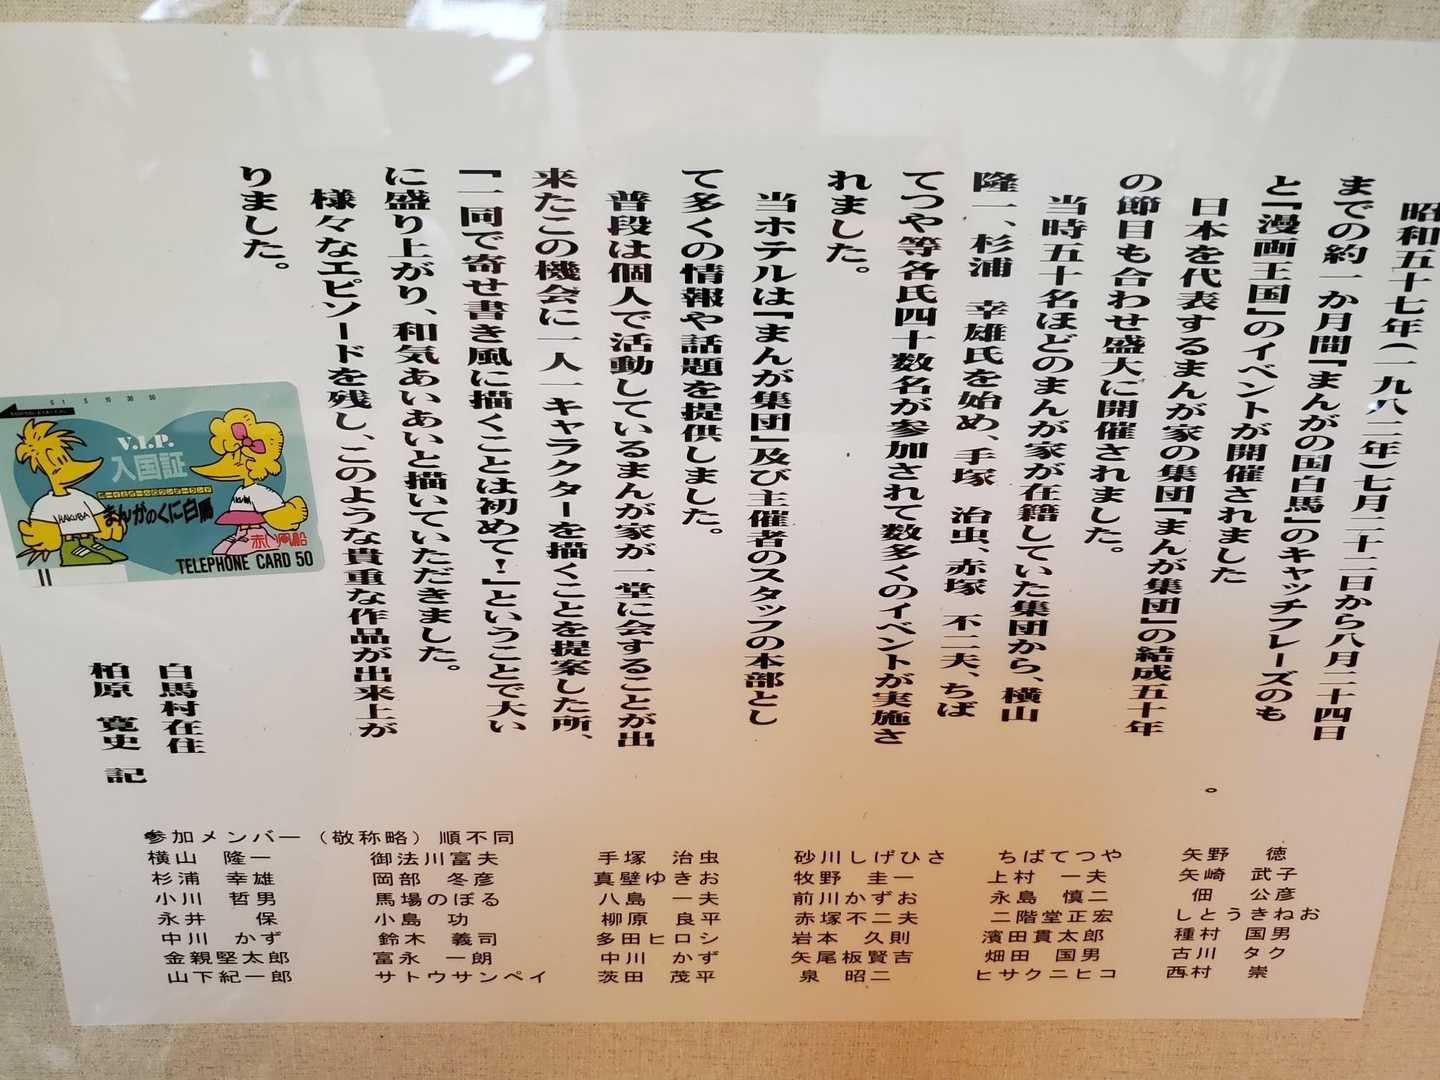 昭和五十七年(一九八二年)七月二十二日から八月二十四日
までの約一か月間『まんがの国白馬』のキャッチフレーズのも
と『漫画王国』のイベントが開催されました
。
日本を代表するまんが家の集団『まんが集団』の結成五十年
の節目も合わせ盛大に開催されました。
当時五十名ほどのまんが家が在籍していた集団から、横山
隆一、杉浦 幸雄氏を始め、手塚 治虫、赤塚 不二夫、ちば
てつや等各氏四十数名が参加されて数多くのイベントが実施さ
れました。
当ホテルは『まんが集団』及び主催者のスタッフの本部とし
て多くの情報や話題を提供しました。
普段は個人で活動しているまんが家が一堂に会することが出
来たこの機会に一人一キャラクターを描くことを提案した所、
『一同で寄せ書き風に描くことは初めて!』ということで大い
に盛り上がり、和気あいあいと描いていただきました。
様々なエピソードを残し、このような貴重な作品が出来上が
りました。
白馬村在住
柏原 寛史 記
V.I.P.
入国証
まんがのくに白馬
HAKUBA
赤い風船
TELEPHONE CARD 50
参加メンバー(敬称略)順不同
横山 隆一 御法川富夫 手塚 治虫 砂川しげひさ ちばてつや 矢野 徳
杉浦 幸雄 岡部 冬彦 真壁ゆきお 牧野 圭一 上村 一夫 矢崎 武子
小川 哲男 馬場のぼる 八島 一夫 前川かずお 永島 慎二 佃 公彦
永井 保 小島 功 柳原 良平 赤塚不二夫 二階堂正宏 しとうきねお
中川 かず 鈴木 義司 多田ヒロシ 岩本 久則 濱田貫太郎 種村 国男
金親堅太郎 富永 一朗 中川 かず 矢尾板賢吉 畑田 国男 古川 タク
山下紀一郎 サトウサンペイ 茨田 茂平 泉 昭二 ヒサクニヒコ 西村 崇